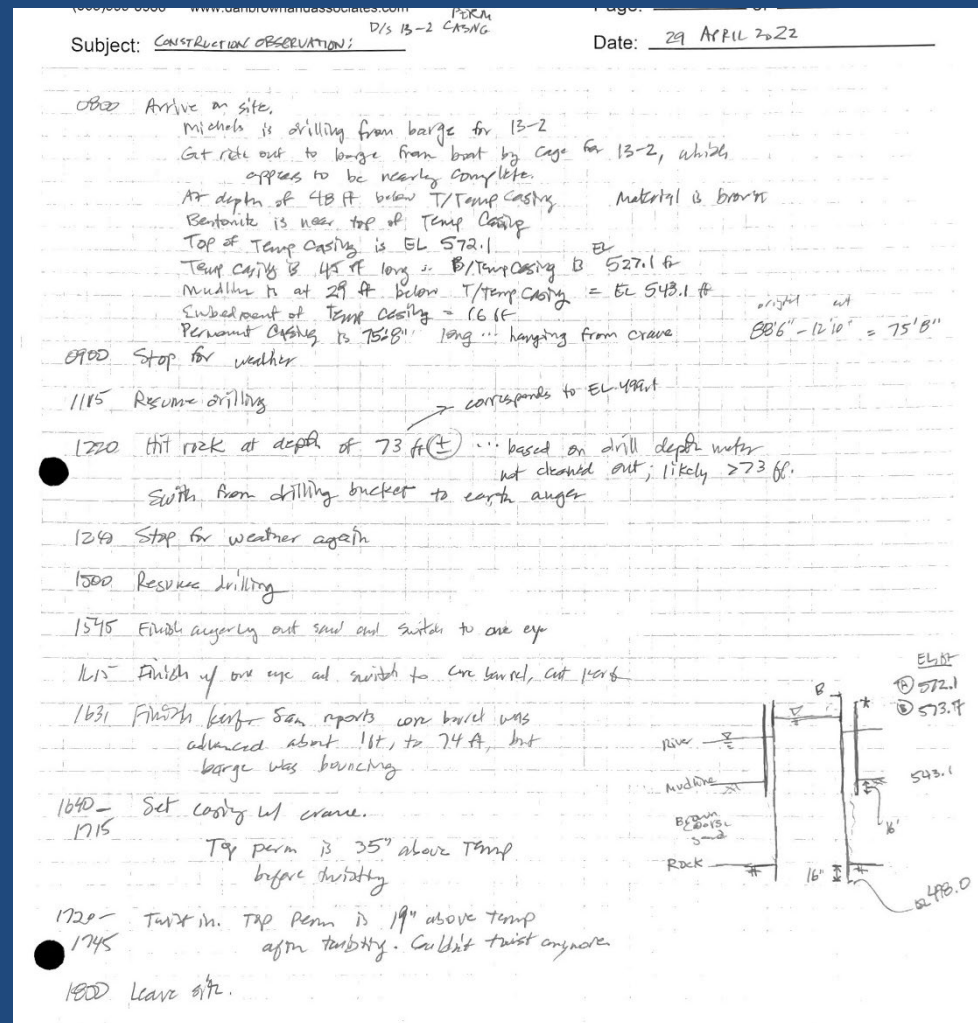 www.danbrownandassociates.com
Subject: CONSTRUCTION OBSERVATION; D/S 13-2 PERM CASING
Date: 29 APRIL 2022
0800 Arrive on site.
Michels is drilling from barge for 13-2
Get ride out to barge from boat by cage for 13-2, which
appears to be nearly complete.
At depth of 48 ft below T/Temp Casing Material is brown
Bentonite is near top of Temp Casing
Top of Temp Casing is EL 572.1
Temp casing is 45 ft long ∴ B/Temp Casing is EL 527.1 ft
Mudline is at 29 ft below T/Temp Casing = EL 543.1 ft
Embedment of Temp Casing = 16 ft
Permanent Casing is 75'8" long ... hanging from crane 88'6" - 12'10" = 75'8"
0900 Stop for weather
1115 Resume drilling
→ corresponds to EL 499.1
1220 Hit rock at depth of 73 ft (±) ... based on drill depth meter
not cleaned out; likely >73 ft.
Swith from drilling bucket to earth auger
1240 Stop for weather again
1500 Resume drilling
1545 Finish augering out sand and switch to one eye
1615 Finish w/ one eye and switch to core barrel, cut kerf
1631 Finish kerf. Sam reports core barrel was
advanced about 1ft, to 74 ft, but
barge was bouncing
1640- Set casing w/ crane.
1715
Top perm is 35" above Temp
before twisting
1720- Twist in. Top Perm is 19" above temp
1745 after twisting. Couldn't twist anymore
1800 Leave site.
EL, ft
Ⓐ 572.1
Ⓑ 573.7
B
River
Mudline
543.1
16'
Brown
Coarse
Sand
Rock
16"
EL 498.0